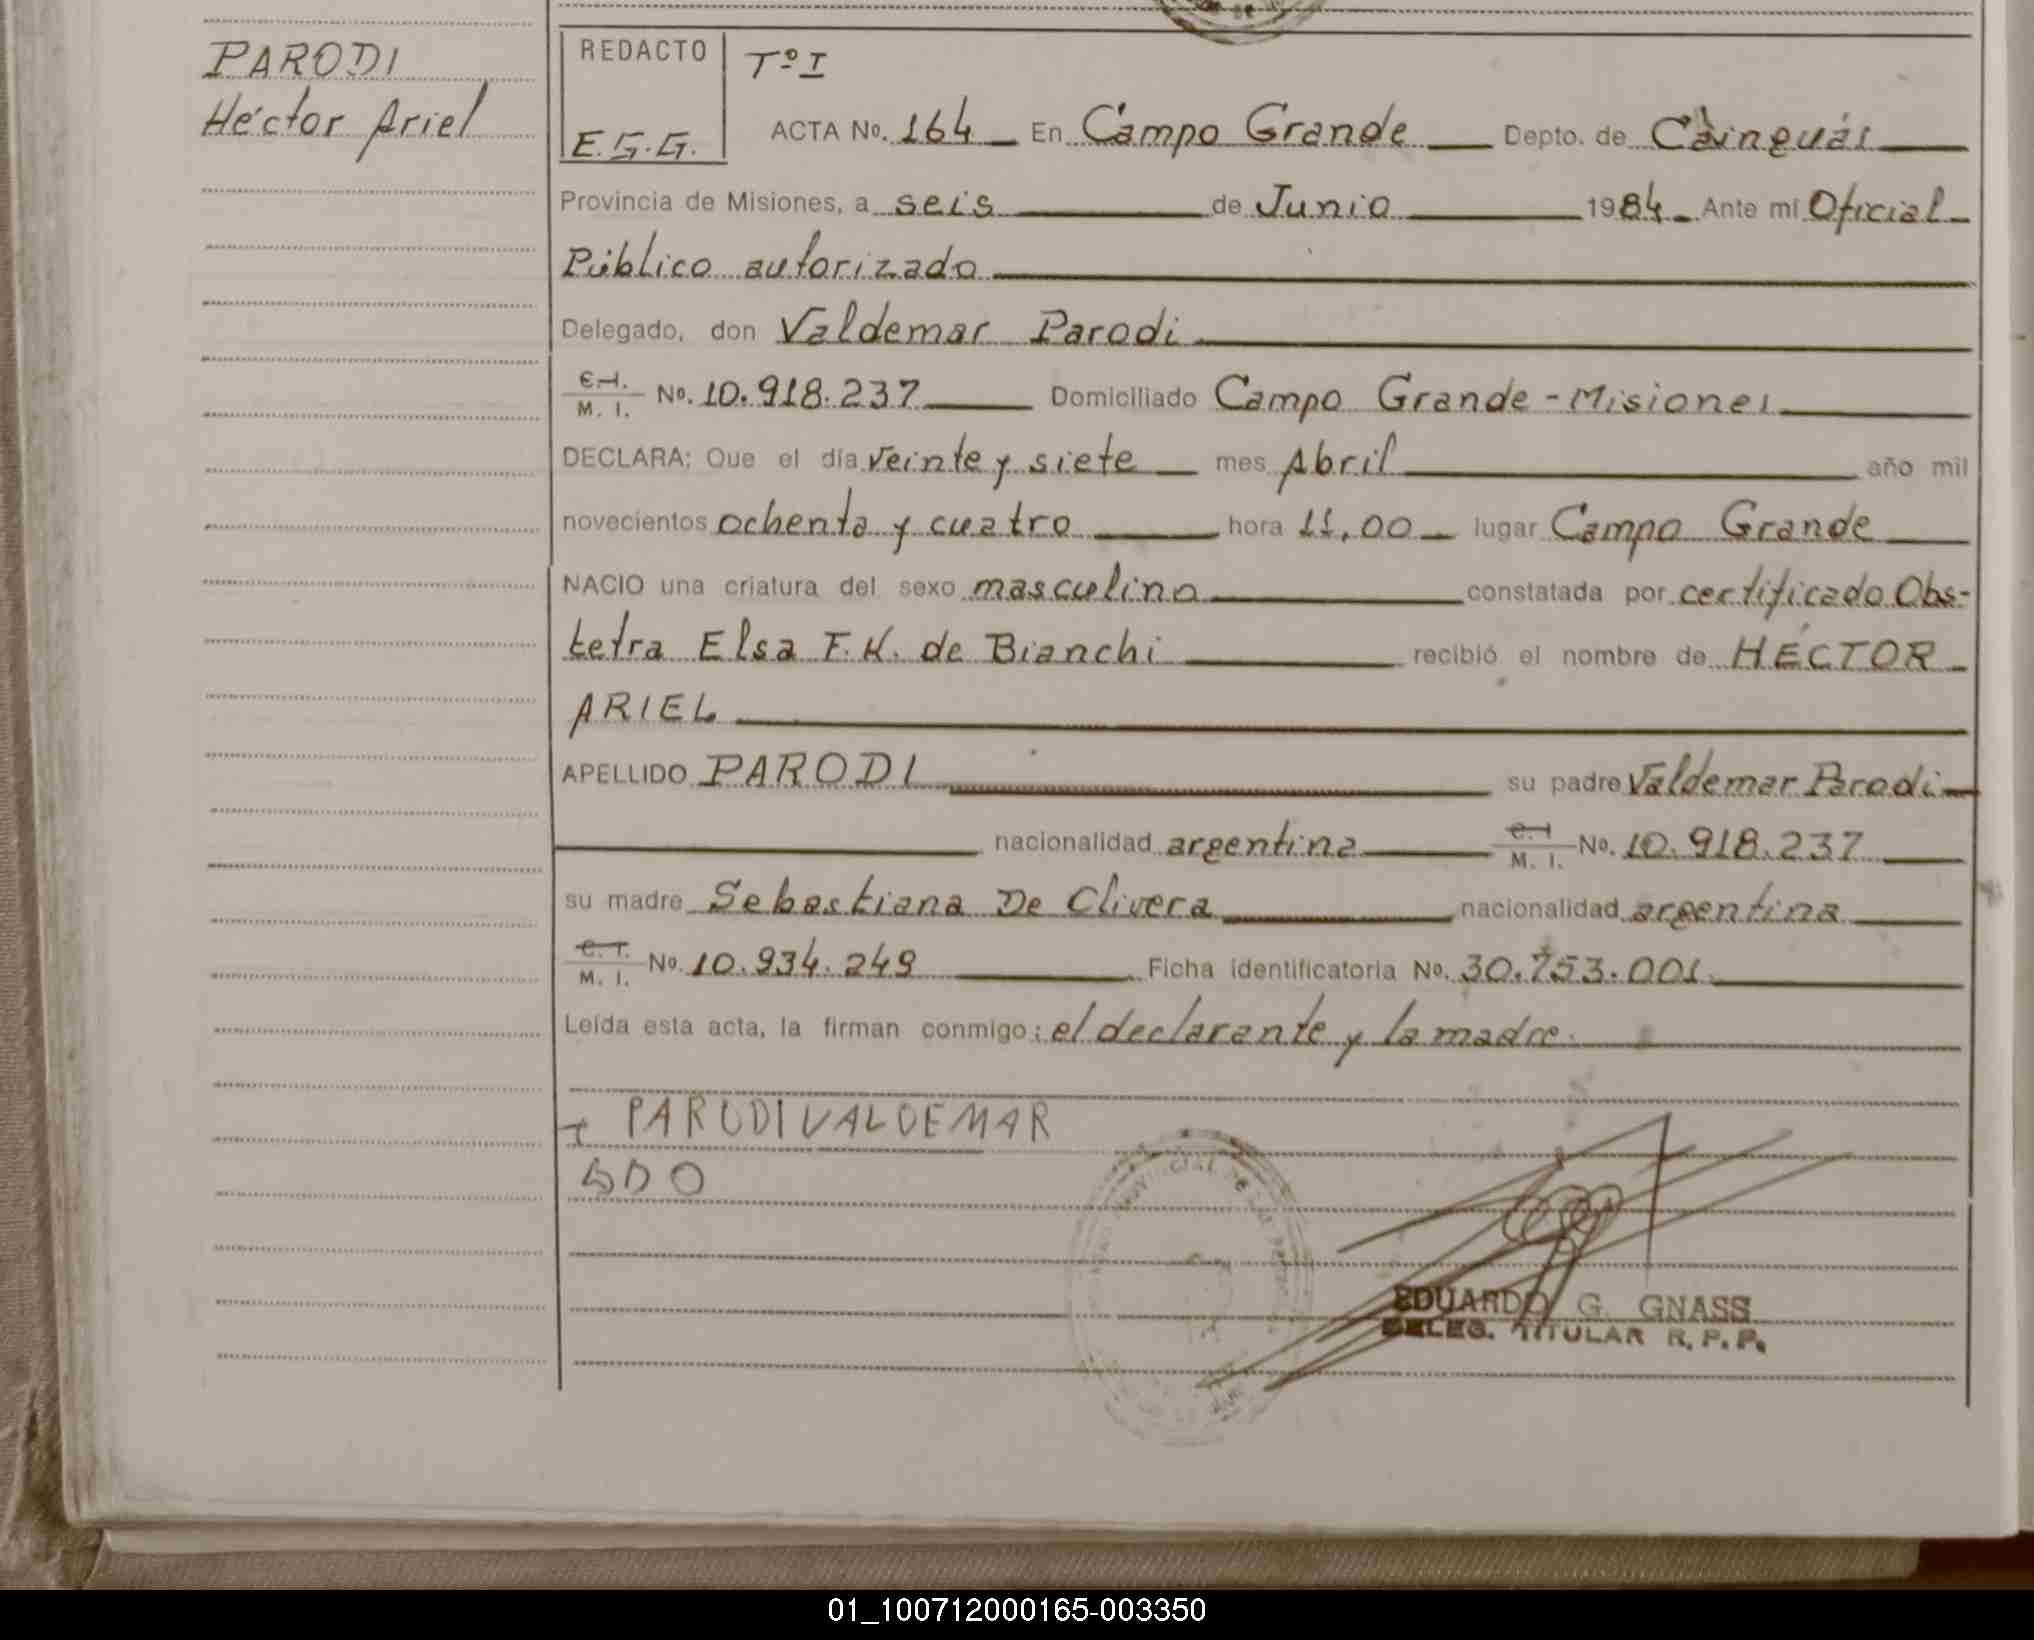 PARODI
Héctor Ariel
REDACTO
E.G.G.
Tº I
ACTA No. 164 En Campo Grande Depto. de Cainguás
Provincia de Misiones, a seis de Junio 1984 Ante mí Oficial
Público autorizado
Delegado, don Valdemar Parodi
C.I. M. I. No. 10.918.237 Domiciliado Campo Grande - Misiones
DECLARA: Que el día veinte y siete mes Abril año mil
novecientos ochenta y cuatro hora 11,00 lugar Campo Grande
NACIO una criatura del sexo masculino constatada por certificado Obs-
tetra Elsa F.K. de Bianchi recibió el nombre de HÉCTOR
ARIEL
APELLIDO PARODI su padre Valdemar Parodi
nacionalidad argentina C.I M. I. No. 10.918.237
su madre Sebastiana De Olivera nacionalidad argentina
C.I. M. I. No. 10.934.249 Ficha identificatoria No. 30.753.001
Leída esta acta, la firman conmigo: el declarante y la madre.
PARODI VALDEMAR
SDO
EDUARDO G. GNASS
DELEG. TITULAR R.P.P.
01_100712000165-003350